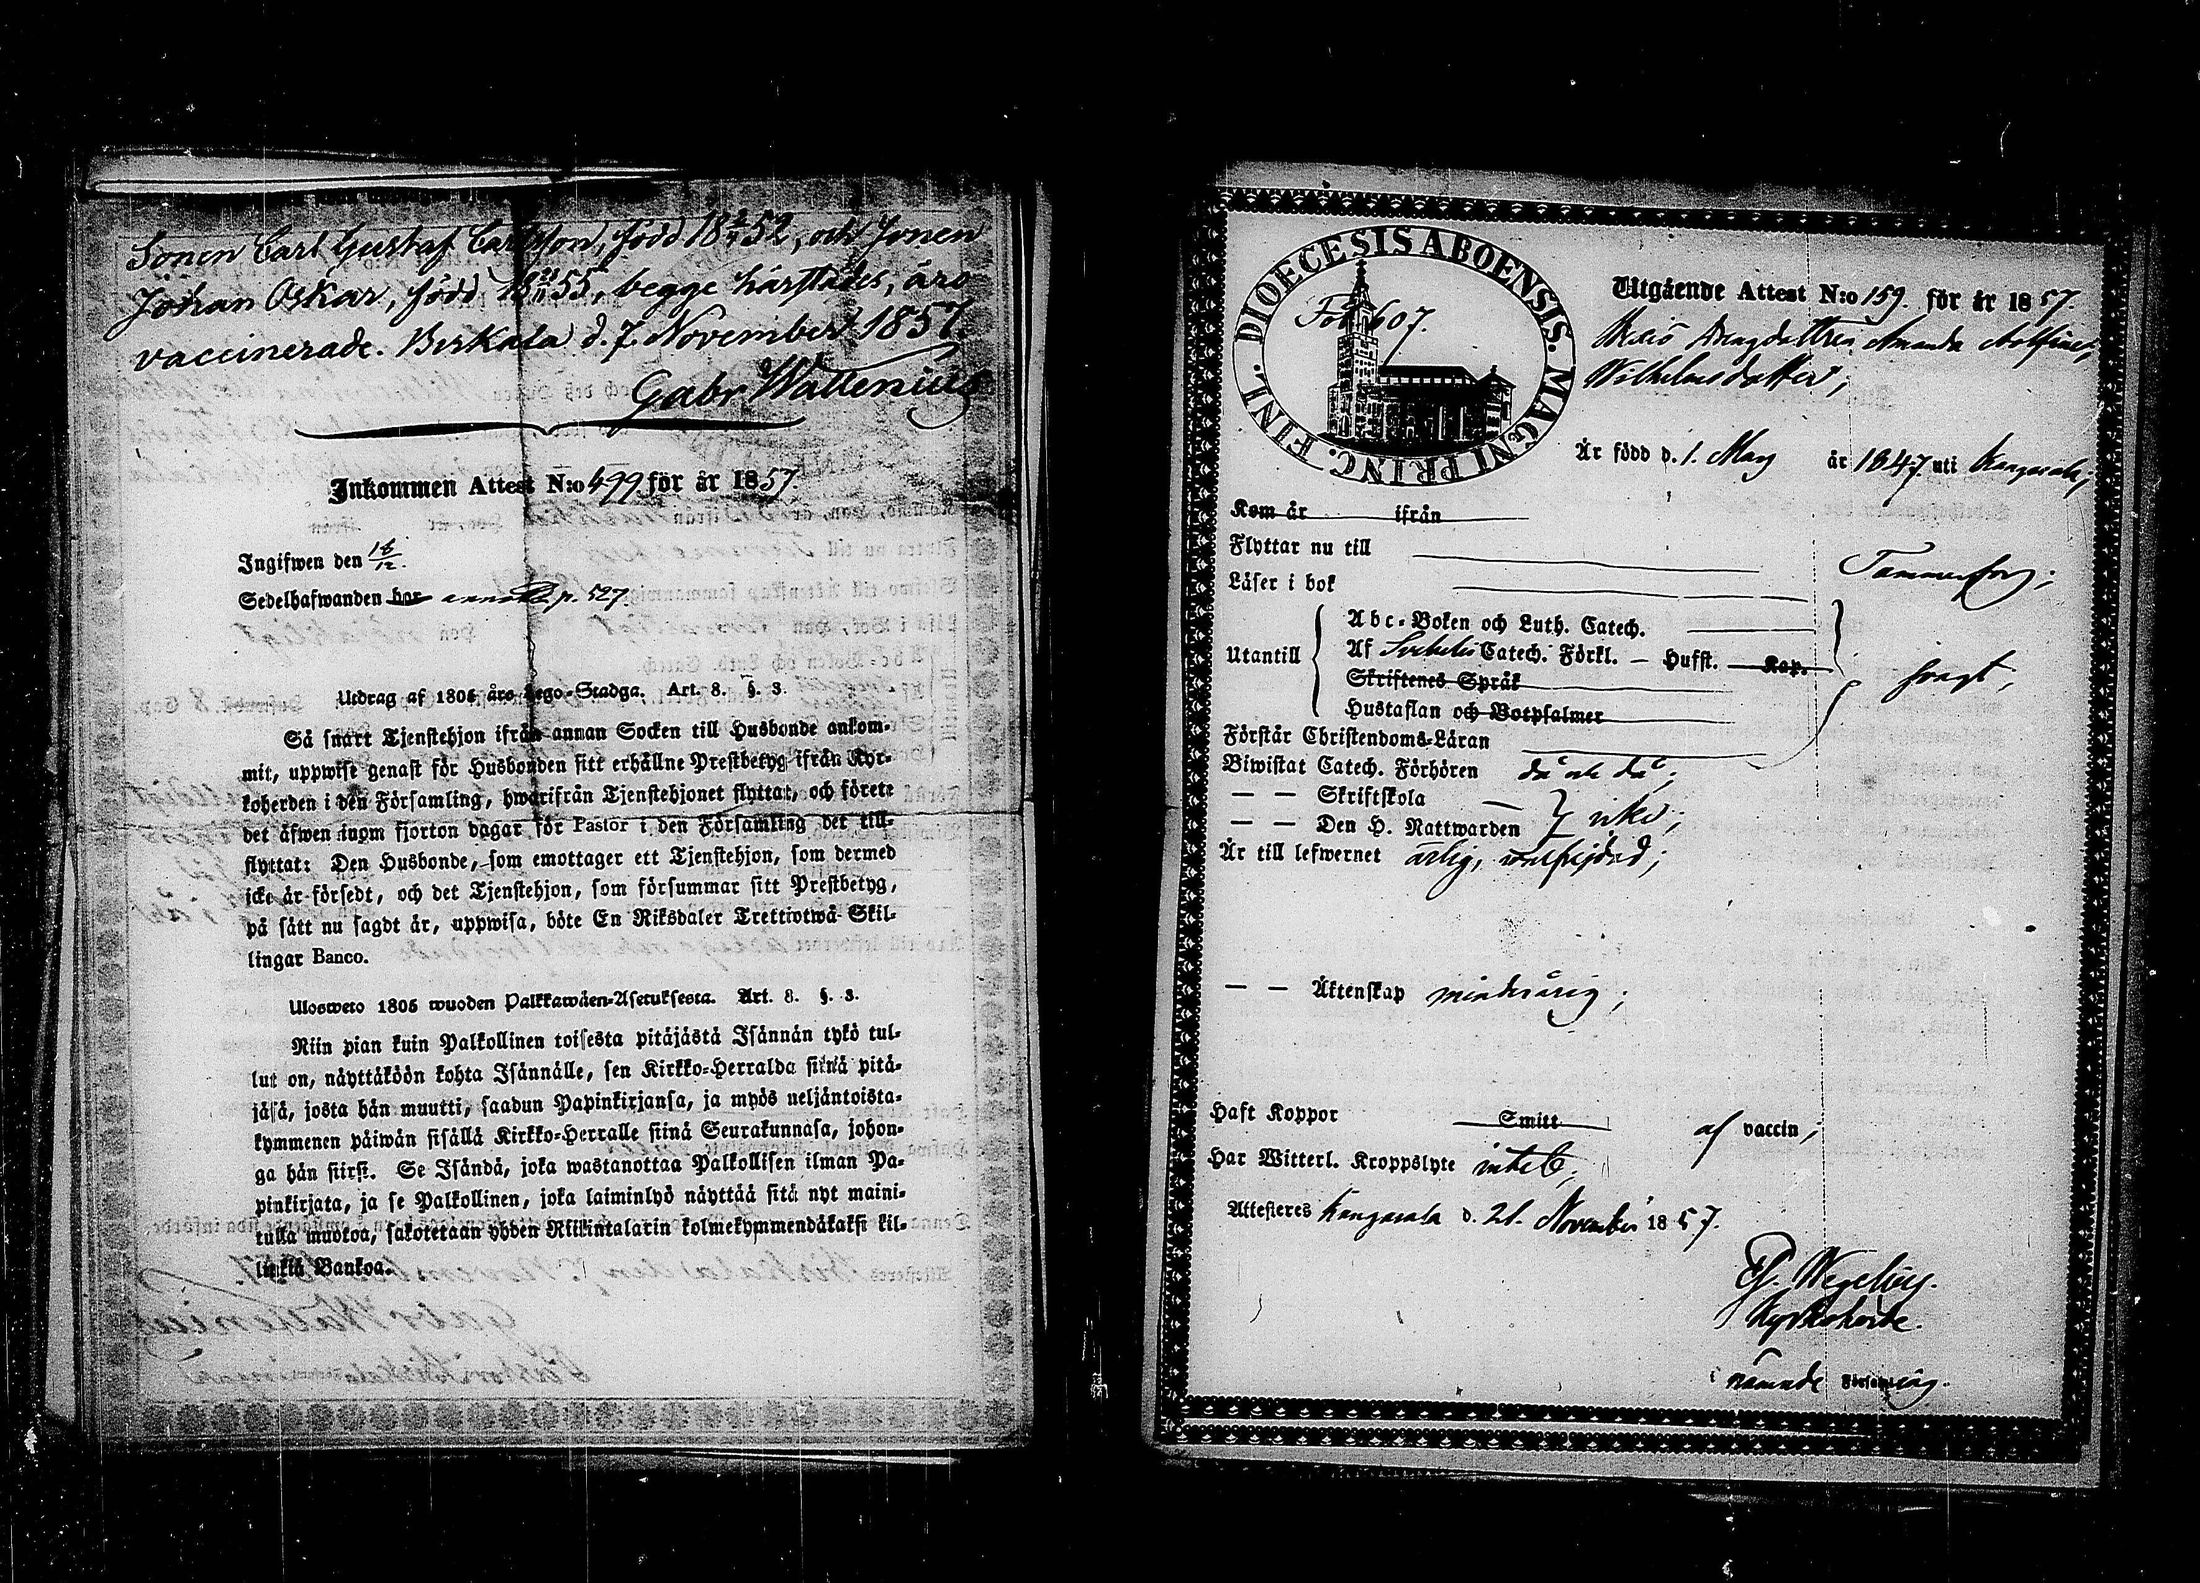 Sonen Carl Gustaf Carlsson, född 18 52, och Sonen
Johan Oskar, född 18 55, begge härstädes, äro
vaccinerade. Birkala d. 7 November 1857.
Gabr Wallenius
Inkommen Attest N:o 499 för år 1857.
Ingifwen den 18/12.
Sedelhafwanden bor annotd p. 527.
Utdrag af 1805 års Lego-Stadga. Art. 8. §. 3.
Så snart Tjenstehjon ifrån annan Socken till Husbonde ankom-
mit, uppwise genast för Husbonden sitt erhållne Prestbetyg ifrån Kyr-
koherden i den Församling, hwarifrån Tjenstehjonet flyttat, och förete
det äfwen inom fjorton dagar för Pastor i den Församling det till-
flyttat: Den Husbonde, som emottager ett Tjenstehjon, som dermed
icke är försedt, och det Tjenstehjon, som försummar sitt Prestbetyg,
på sätt nu sagdt är, uppwisa, böte En Riksdaler Trettiotwå Skil-
lingar Banco.
Ulosweto 1805 wuoden Palkkawäen-Asetuksesta. Art. 8. §. 3.
Niin pian kuin Palkollinen toisesta pitäjästä Isännän tykö tul-
lut on, näyttäköön kohta Isännälle, sen Kirkko-Herralda siinä pitä-
jäsä, josta hän muutti, saadun Papinkirjansa, ja myös neljäntoista-
kymmenen päiwän sisällä Kirkko-Herralle siinä Seurakunnasa, johon-
ga hän siirst. Se Isändä, joka wastanottaa Palkollisen ilman Pa-
pinkirjata, ja se Palkollinen, joka laiminlyö näyttää sitä nyt maini-
tulla mudtoa, sakotetaan yhden Riikintalarin kolmekymmendäkaksi kil-
linkiä Bankoa.
DIOECESIS ABOENSIS. MAGNI PRINC. FINL.
Fol 607.
Utgående Attest N:o 159. för år 1857.
Drengdottren Amanda Adolfina
Wilhelmsdotter,
Är född d. 1. Maj år 1847 uti Kangasala;
Kom år ifrån
Flyttar nu till Tammerfors;
Läser i bok
Utantill
Abc-Boken och Luth. Catech.
Af Svebelii Catech. Förkl. — Hufst. — Kap.
Skriftenes Språk
Hustaflan och Botpsalmer
svagt,
Förstår Christendoms-Läran
Biwistat Catech. Förhören då och då;
— — Skriftskola —
— — Den H. Nattwarden icke;
Är till lefwernet ärlig, wälfrejdad;
— — Äktenskap minderårig;
Haft Koppor Smitt af vaccin;
Har Witterl. Kroppslyte intet;
Attesteres Kangasala d. 21. November 1857.
Wegelius.
Kyrkoherde.
i nämnde Församling.